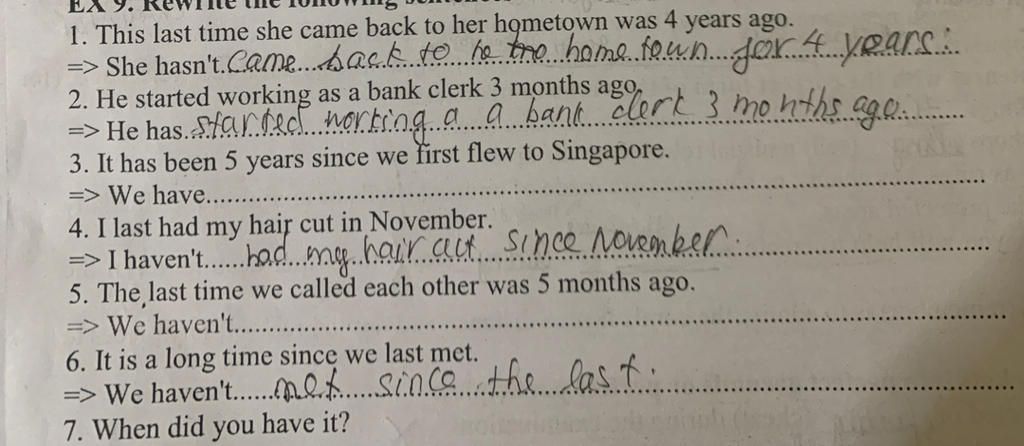 EX 9. Rewrite the following sentences
1. This last time she came back to her hometown was 4 years ago.
=> She hasn't.came back to he tro home town for 4 years.
2. He started working as a bank clerk 3 months ago.
=> He has.started working a a bank clerk 3 months ago.
3. It has been 5 years since we first flew to Singapore.
=> We have
4. I last had my hair cut in November.
=> I haven't......had my hair cut since November.
5. The last time we called each other was 5 months ago.
=> We haven't
6. It is a long time since we last met.
=> We haven't......met since the last.
7. When did you have it?